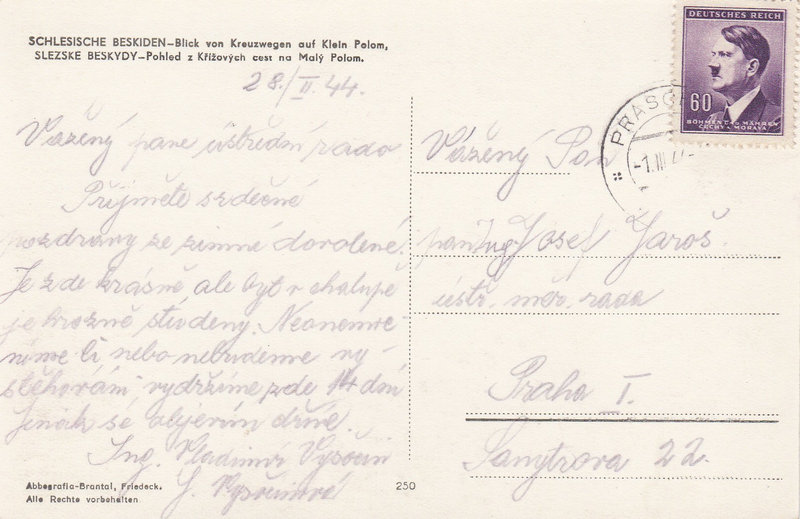 SCHLESISCHE BESKIDEN—Blick von Kreuzwegen auf Klein Polom,
SLEZSKE BESKYDY—Pohled z Křížových cest na Malý Polom.
28./II. 44.
Vážený pane ústřední rado
Přijměte srdečné
pozdravy ze zimné dovolené.
Je zde krásně ale byt v chalupě
je hrozně studený. Neonemoc
níme li nebo nebudeme vy-
stěhováni vydržíme zde 14 dní
Jinak sé
Ing. Vladimír
Abbegrafia-Brantal, Friedeck.
Alle Rechte vorbehalten
250
DEUTSCHES REICH
60
BÖHMEN U. MÄHREN
ČECHY A MORAVA
-1.III.
Vážený Pan
pan Ing Josef Jaroš
ústř. měr. rada
Praha I.
Sanytrova 22.